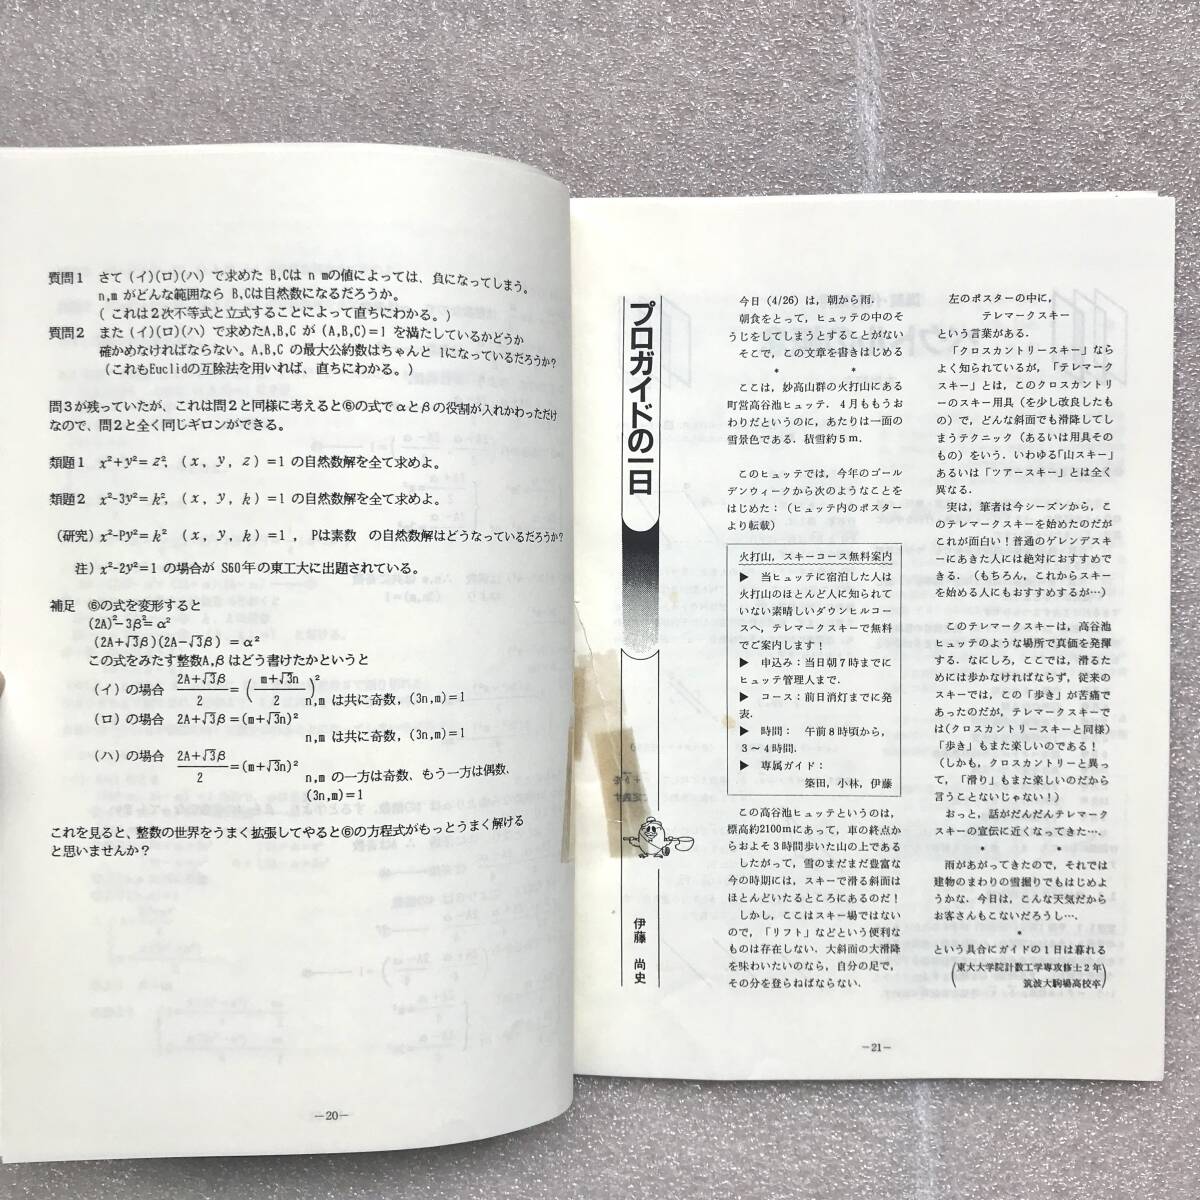 質問1 さて (イ)(ロ)(ハ) で求めた B,Cは n mの値によっては、負になってしまう。
n,m がどんな範囲なら B,Cは自然数になるだろうか。
( これは2次不等式と立式することによって直ちにわかる。)
質問2 また (イ)(ロ)(ハ) で求めたA,B,C が (A,B,C)=1 を満たしているかどうか
確かめなければならない。A,B,C の最大公約数はちゃんと 1になっているだろうか?
(これもEuclidの互除法を用いれば、直ちにわかる。)
問3が残っていたが、これは問2と同様に考えると⑥の式でαとβの役割が入れかわっただけ
なので、問2と全く同じギロンができる。
類題1 x²+y²=z², (x, y, z)=1 の自然数解を全て求めよ。
類題2 x²-3y²=k², (x, y, k)=1 の自然数解を全て求めよ。
(研究) x²-Py²=k² (x, y, k)=1 , Pは素数 の自然数解はどうなっているだろうか?
注) x²-2y²=1 の場合が S60年の東工大に出題されている。
補足 ⑥の式を変形すると
(2A)²-3β²=α²
(2A+√3β)(2A-√3β) = α²
この式をみたす整数A,βはどう書けたかというと
(イ) の場合 (2A+√3β)/2 = ((m+√3n)/2)² n,m は共に奇数, (3n,m)=1
(ロ) の場合 2A+√3β=(m+√3n)²
n,m は共に奇数, (3n,m)=1
(ハ) の場合 (2A+√3β)/2 =(m+√3n)² n,m の一方は奇数、もう一方は偶数、
(3n,m)=1
これを見ると、整数の世界をうまく拡張してやると⑥の方程式がもっとうまく解ける
と思いませんか?
-20-
プロガイドの一日
伊藤 尚史
今日 (4/26) は, 朝から雨.
朝食をとって, ヒュッテの中のそ
うじをしてしまうとすることがない
そこで, この文章を書きはじめる
* *
ここは, 妙高山群の火打山にある
町営高谷池ヒュッテ. 4月ももうお
わりだというのに, あたりは一面の
雪景色である. 積雪約5m.
このヒュッテでは, 今年のゴール
デンウィークから次のようなことを
はじめた: (ヒュッテ内のポスター
より転載)
火打山, スキーコース無料案内
▶ 当ヒュッテに宿泊した人は
火打山のほとんど人に知られて
いない素晴しいダウンヒルコー
スへ, テレマークスキーで無料
でご案内します!
▶ 申込み: 当日朝7時までにヒ
ュッテ管理人まで.
▶ コース: 前日消灯までに発
表.
▶ 時間: 午前8時頃から,
3～4時間.
▶ 専属ガイド:
築田, 小林, 伊藤
この高谷池ヒュッテというのは,
標高約2100mにあって, 車の終点か
らおよそ3時間歩いた山の上である
したがって, 雪のまだまだ豊富な
今の時期には, スキーで滑る斜面は
ほとんどいたるところにあるのだ!
しかし, ここはスキー場ではない
ので, 「リフト」などという便利な
ものは存在しない. 大斜面の大滑降
を味わいたいのなら, 自分の足で,
その分を登らねばならない.
左のポスターの中に,
テレマークスキー
という言葉がある.
「クロスカントリースキー」なら
よく知られているが, 「テレマーク
スキー」とは, このクロスカントリ
ーのスキー用具 (を少し改良したも
の) で, どんな斜面でも滑降してし
まうテクニック (あるいは用具その
もの) をいう. いわゆる「山スキー」
あるいは「ツアースキー」とは全く
異なる.
実は, 筆者は今シーズンから, こ
のテレマークスキーを始めたのだが
これが面白い! 普通のゲレンデスキ
ーにあきた人には絶対におすすめで
きる. (もちろん, これからスキー
を始める人にもおすすめするが…)
このテレマークスキーは, 高谷池
ヒュッテのような場所で真価を発揮
する. なにしろ, ここでは, 滑るた
めには歩かなければならず, 従来の
スキーでは, この「歩き」が苦痛で
あったのだが, テレマークスキーで
は(クロスカントリースキーと同様)
「歩き」もまた楽しいのである!
(しかも, クロスカントリーと異っ
て, 「滑り」もまた楽しいのだから
言うことないじゃない!)
おっと, 話がだんだんテレマーク
スキーの宣伝に近くなってきた….
* *
雨があがってきたので, それでは
建物のまわりの雪掘りでもはじめよ
うかな. 今日は, こんな天気だから
お客さんもこないだろうし….
*
という具合にガイドの1日は暮れる
(東大大学院計数工学専攻修士2年
筑波大駒場高校卒)
-21-